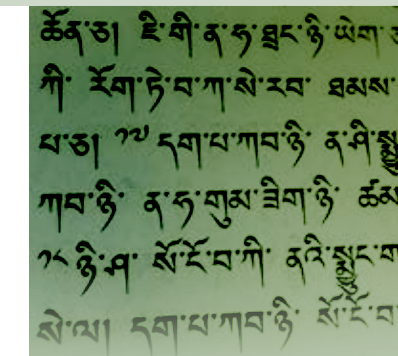 ཚོན་ཅ། ཇི་གི་ན་ཧ་ཐྲང་ཉི་ཡེག་
ཀི་ རོག་ཏེ་བ་ཀ་སེ་རབ་ ཐམས་
པ་ཅ། ༡༧ དག་པ་ཀབ་ཉི་ ན་ཤི་
ཀབ་ཉི་ ན་ཧ་གུམ་ཟིག་ཉི་ ཚམ
༡༨ ཉི་ཤ་ སོ་ངོ་བ་ཀི་ ནའི་
སེ་ལ། དག་པ་ཀབ་ཉི་ སོ་ངོ་བ་